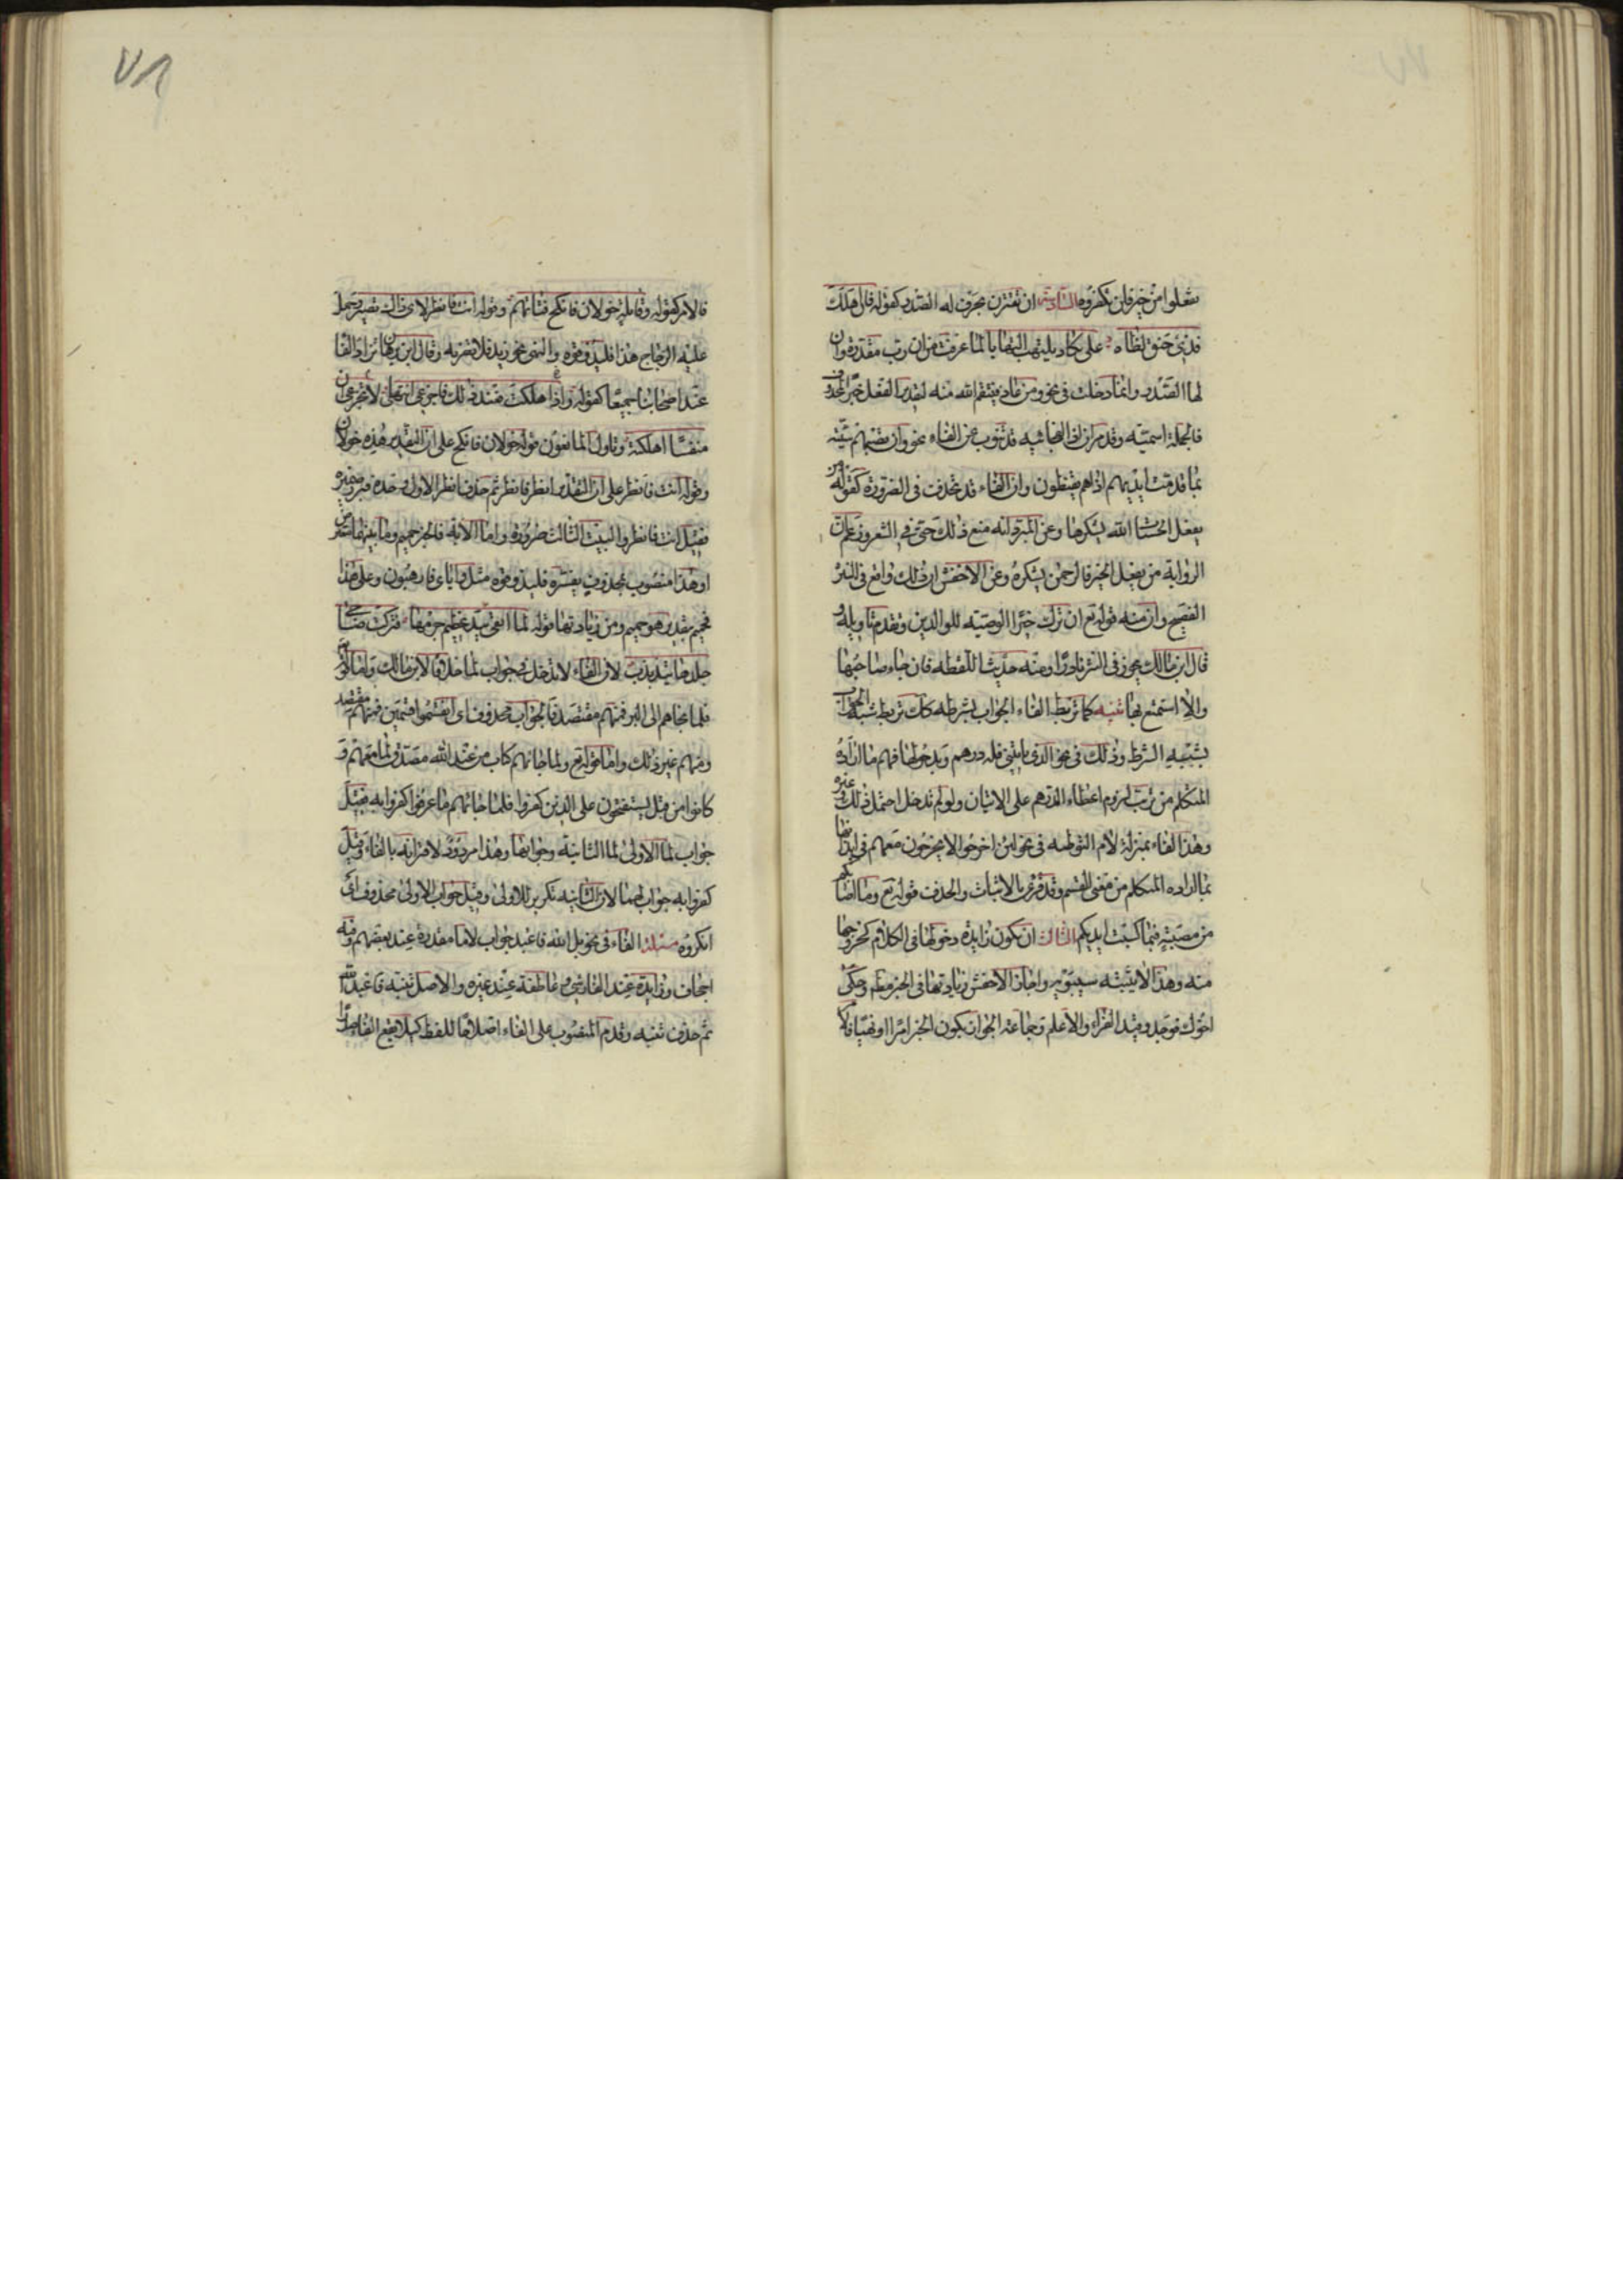 يفعلوا من خير فلن تكفروه السادسة ان تقترن بحرف له الصدر كقوله فان اهلك
فذي حنق لظاه علي تكاد تلتهب التهابا لما عرفت من ان رب مقدرة وان
لها الصدر وانما دخلت في نحو ومن عاد فينتقم الله منه لتقدير الفعل خبرا لمحذوف
فالجملة اسمية وقد مر ان اذا الفجائية قد تنوب عن الفاء نحو وان تصبهم سيئة
بما قدمت ايديهم اذا هم يقنطون وان الفاء قد تحذف في الضرورة كقوله من
يفعل الحسنات الله يشكرها وعن المبرد انه منع ذلك حتى في الشعر وزعم ان
الرواية من يفعل الخير فالرحمن يشكره وعن الاخفش ان ذلك واقع في النثر
الفصيح وان منه قوله تع ان ترك خيرا الوصية للوالدين وتقدم تاويله و
قال ابن مالك يجوز في النثر نادرا ومنه حديث اللقطة فان جاء صاحبها
والا استمتع بها تنبيه كما تربط الفاء الجواب بشرطه كذلك تربط شبه الجواب
بشبه الشرط وذلك في نحو الذي ياتيني فله درهم وبدخولها فهم ما اراده
المتكلم من ترتب لزوم اعطاء الدرهم على الاتيان ولو لم تدخل احتمل ذلك وغيره
وهذا الفاء بمنزلة لام التوطئة في نحو لئن اخرجوا لا يخرجون معهم في ايذانها
بما اراده المتكلم من معنى القسم وقد قرئ بالاثبات والحذف قوله تع وما اصابكم
من مصيبة فبما كسبت ايديكم الثالث ان تكون زايدة دخولها في الكلام كخروجها
منه وهذا لا يثبته سيبويه واجاز الاخفش زيادتها في الخبر مطلقا وحكى
اخوك فوجد وقيد الفراء والاعلم وجماعة الجواز بكون الخبر امرا او نهيا
فالامر كقوله وقائلة خولان فانكح فتاتهم وقوله انت فانظر لاي ذاك تصير وحمل
عليه الزجاج هذا فليذوقوه والنهي نحو زيد فلا تضربه وقال ابن برهان تزاد الفاء
عند اصحابنا جميعا كقوله واذا هلكت فعند ذلك فاجزعي انتهى لا تجزعي ان
منفسا اهلكته وتاول المانعون قوله خولان فانكح على ان التقدير هذه خولان
وقوله انت فانظر على ان التقدير انظر فانظر ثم حذف انظر الاول وحده فبرز ضميره
فقيل انت فانظر والبيت الثالث ضرورة واما الاية فالخبر حميم وما بينهما معترض
او هذا منصوب بمحذوف يفسره فليذوقوه مثل واياي فارهبون وعلى هذا
فحميم بتقدير هو حميم ومن زيادتها قوله لما اتقى بيد عظيم جرمها فتركت ضاحي
جلدها يتذبذب لان الفاء لا تدخل في جواب لما خلافا لابن مالك واما قوله
فلما نجاهم الى البر فمنهم مقتصد فالجواب محذوف اي انقسموا قسمين فمنهم مقتصد
ومنهم غير ذلك واما قوله تع ولما جائهم كتاب من عند الله مصدق لما معهم و
كانوا من قبل يستفتحون على الذين كفروا فلما جائهم ما عرفوا كفروا به فقيل
جواب لما الاولى لما الثانية وجوابها وهذا مردود لاقترانه بالفاء وقيل
كفروا به جواب لهما لان الثانية تكرير للاولى وقيل جواب الاولى محذوف اي
انكروه مسئلة الفاء في نحو بل الله فاعبد جواب لاما مقدرة عند بعضهم وفيه
اجحاف وزايدة عند الفارسي وعاطفة عند غيره والاصل تنبه فاعبد الله
ثم حذف تنبه وقدم المنصوب على الفاء اصلاحا للفظ كيلا تقع الفاء صدرا